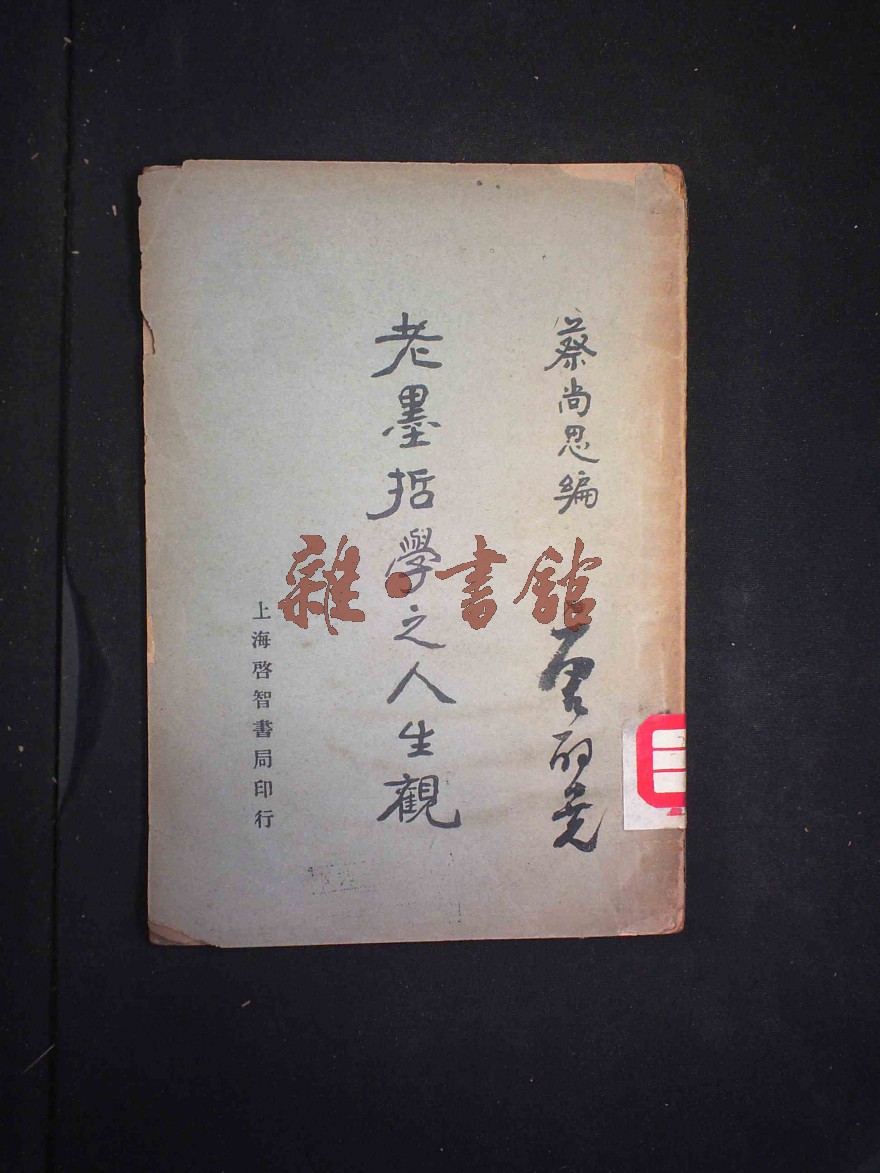 蔡尚思編
老墨哲學之人生觀
上海啓智書局印行
雜書館